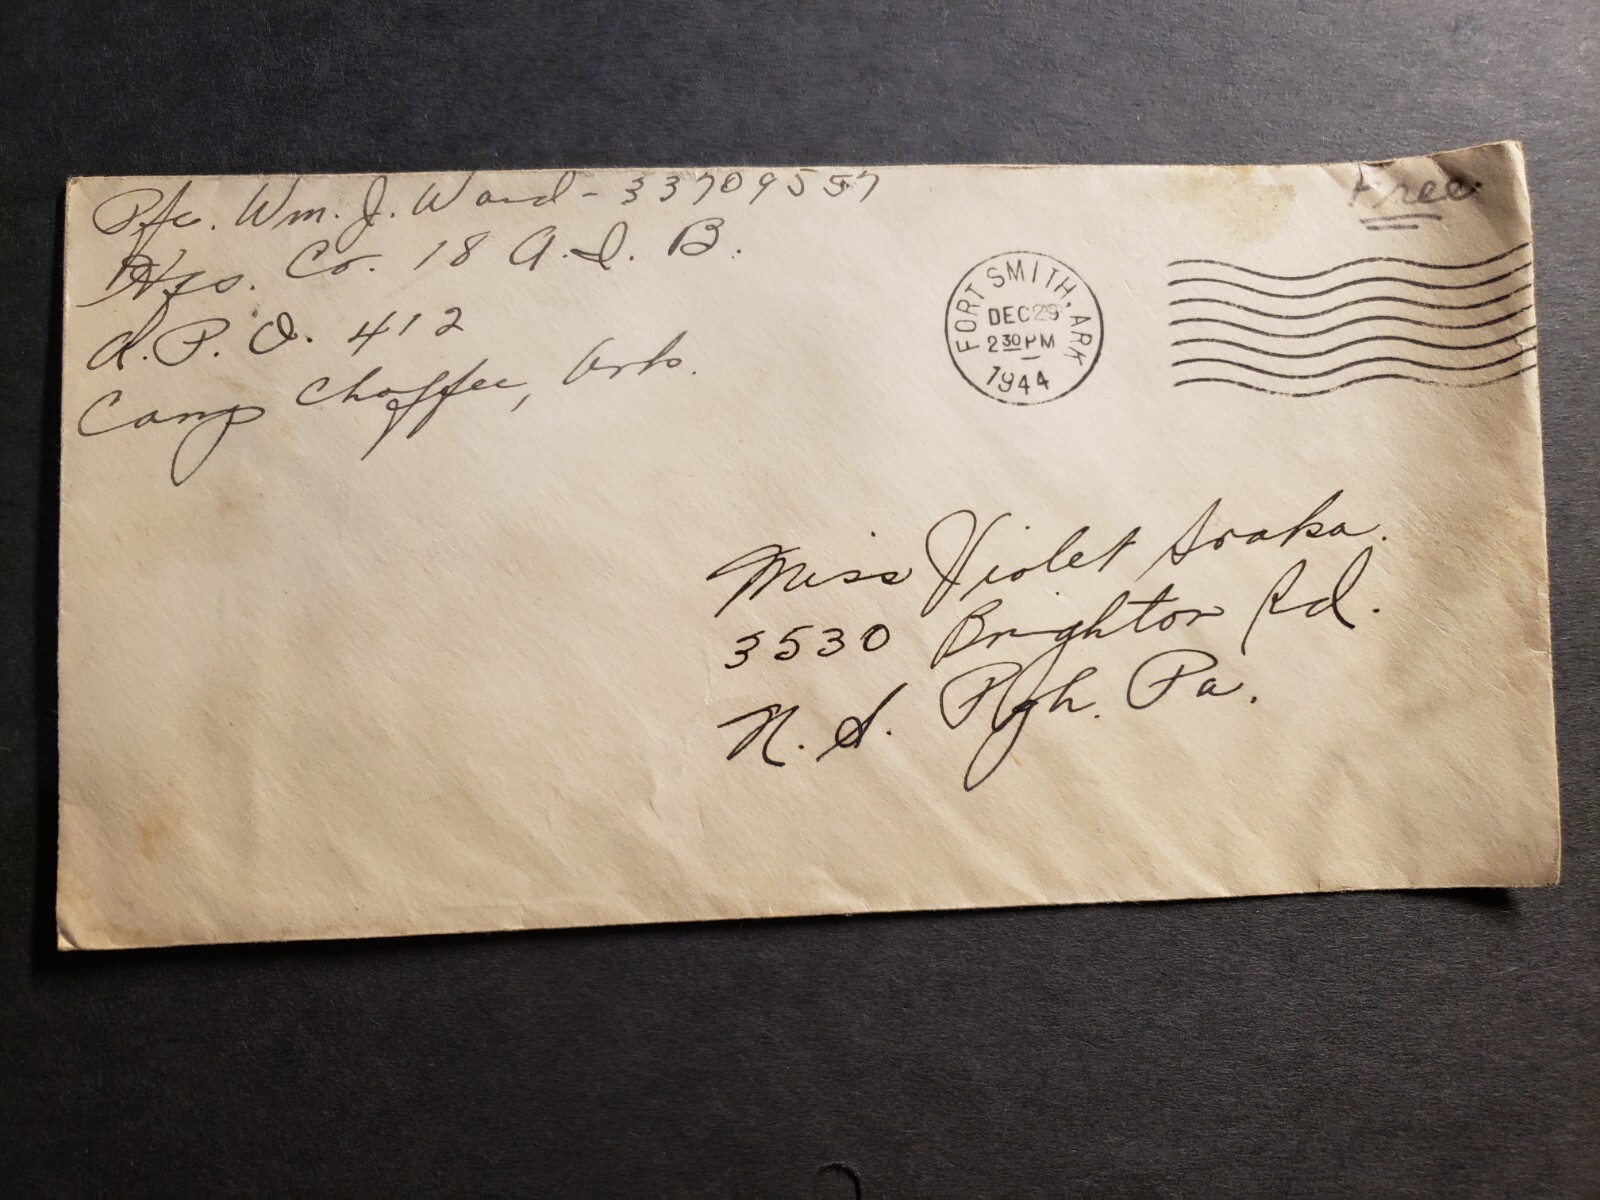 Pfc. Wm. J. Ward - 33709557
Hqs. Co. 18 A.I.B.
A.P.O. 412
Camp Chaffee, Ark.
Free
FORT SMITH, ARK
DEC 29
2 30 PM
1944
Miss Violet
3530 Brighton Rd.
N. S. Pgh. Pa.